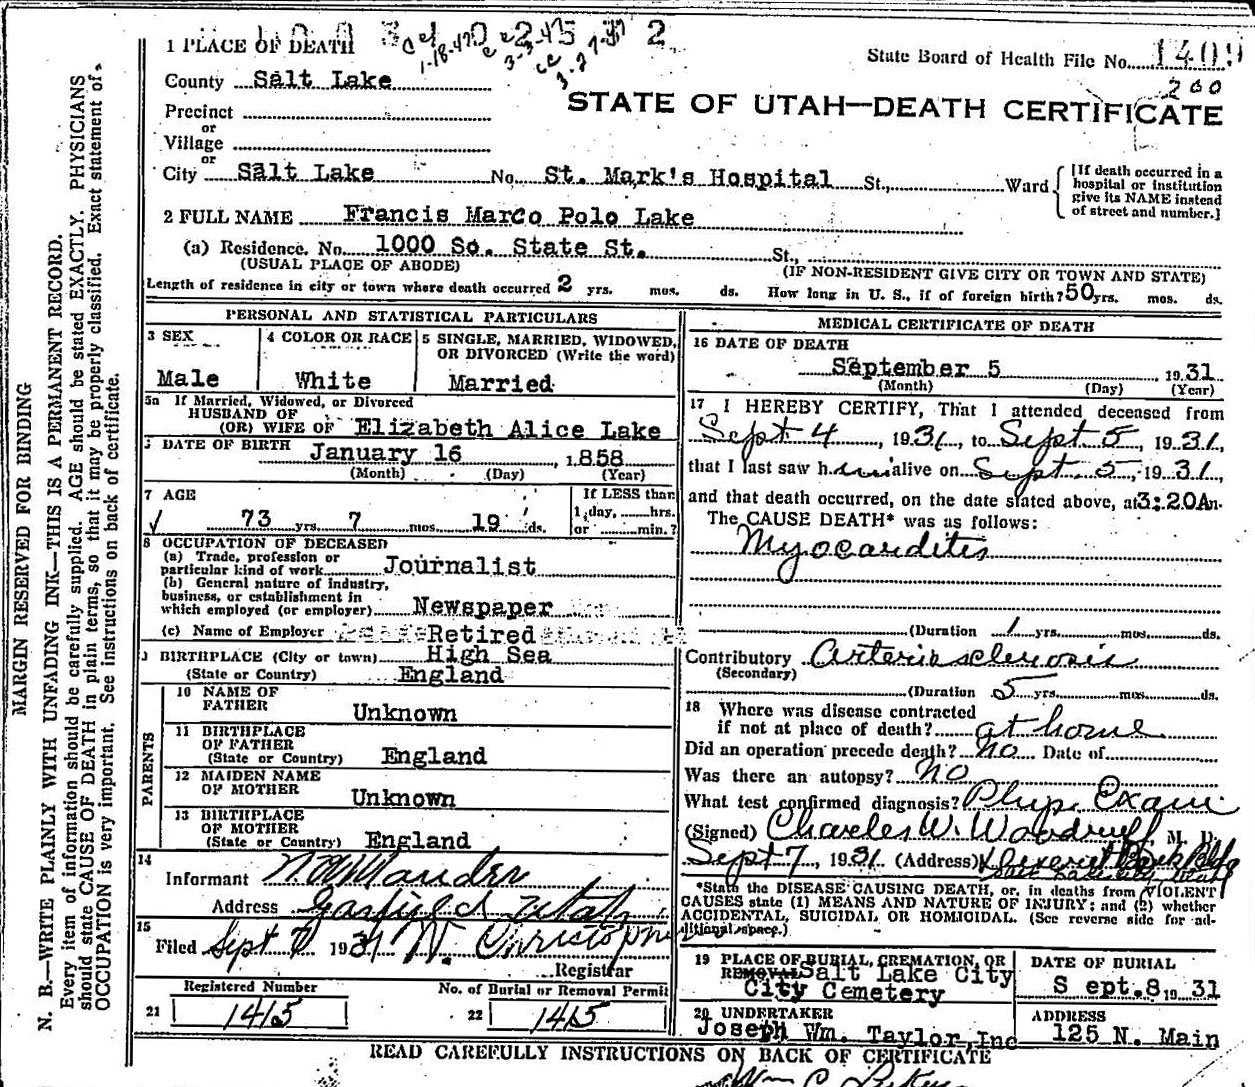 1 PLACE OF DEATH
State Board of Health File No. 1409
200
County Salt Lake
STATE OF UTAH—DEATH CERTIFICATE
Precinct
or
Village
or
City Salt Lake No. St. Mark's Hospital St., Ward
[If death occurred in a
hospital or institution
give its NAME instead
of street and number.]
2 FULL NAME Francis Marco Polo Lake
(a) Residence. No. 1000 So. State St. St.,
(USUAL PLACE OF ABODE) (IF NON-RESIDENT GIVE CITY OR TOWN AND STATE)
Length of residence in city or town where death occurred 2 yrs. mos. ds. How long in U. S., if of foreign birth? 50 yrs. mos. ds.
MARGIN RESERVED FOR BINDING
N. B.—WRITE PLAINLY WITH UNFADING INK—THIS IS A PERMANENT RECORD.
Every item of information should be carefully supplied. AGE should be stated EXACTLY. PHYSICIANS
should state CAUSE OF DEATH in plain terms, so that it may be properly classified. Exact statement of
OCCUPATION is very important. See instructions on back of certificate.
PERSONAL AND STATISTICAL PARTICULARS
3 SEX
Male
4 COLOR OR RACE
White
5 SINGLE, MARRIED, WIDOWED,
OR DIVORCED (Write the word)
Married
5a If Married, Widowed, or Divorced
HUSBAND OF
(OR) WIFE OF Elizabeth Alice Lake
DATE OF BIRTH January 16, 1858
(Month) (Day) (Year)
7 AGE
73 yrs. 7 mos. 19 ds.
If LESS than
1 day, hrs.
or min.?
8 OCCUPATION OF DECEASED
(a) Trade, profession or
particular kind of work Journalist
(b) General nature of industry,
business, or establishment in
which employed (or employer) Newspaper
(c) Name of Employer Retired
BIRTHPLACE (City or town) High Sea
(State or Country) England
PARENTS
10 NAME OF
FATHER Unknown
11 BIRTHPLACE
OF FATHER
(State or Country) England
12 MAIDEN NAME
OF MOTHER Unknown
13 BIRTHPLACE
OF MOTHER
(State or Country) England
14
Informant
Address Garfield Utah
15
Filed Sept 7 1931
Registrar
Registered Number
21 1415
No. of Burial or Removal Permit
22 1415
MEDICAL CERTIFICATE OF DEATH
16 DATE OF DEATH
September 5 1931
(Month) (Day) (Year)
17 I HEREBY CERTIFY, That I attended deceased from
Sept 4, 1931, to Sept 5, 1931,
that I last saw him alive on Sept. 5, 1931,
and that death occurred, on the date stated above, at 3:20A m.
The CAUSE DEATH* was as follows:
Myocarditis
(Duration 1 yrs. mos. ds.
Contributory Arteriosclerosis
(Secondary)
(Duration 5 yrs. mos. ds.
18 Where was disease contracted
if not at place of death? at home
Did an operation precede death? no Date of
Was there an autopsy? no
What test confirmed diagnosis? Phys. Exam
(Signed) Charles W. Woodruff, M. D.
Sept 7, 1931 (Address) Deseret Bank Bldg
Salt Lake City Utah
*State the DISEASE CAUSING DEATH, or, in deaths from VIOLENT
CAUSES state (1) MEANS AND NATURE OF INJURY; and (2) whether
ACCIDENTAL, SUICIDAL OR HOMICIDAL. (See reverse side for ad-
ditional space.)
19 PLACE OF BURIAL, CREMATION, OR
REMOVAL Salt Lake City
City Cemetery
DATE OF BURIAL
Sept. 8, 1931
20 UNDERTAKER
Joseph Wm. Taylor, Inc
ADDRESS
125 N. Main
READ CAREFULLY INSTRUCTIONS ON BACK OF CERTIFICATE